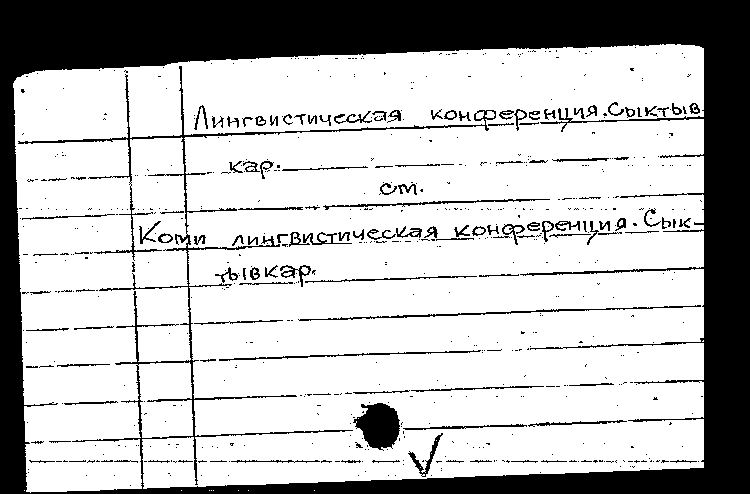 Лингвистическая конференция. Сыктыв-
кар.
см.
Коми лингвистическая конференция. Сык-
тывкар.